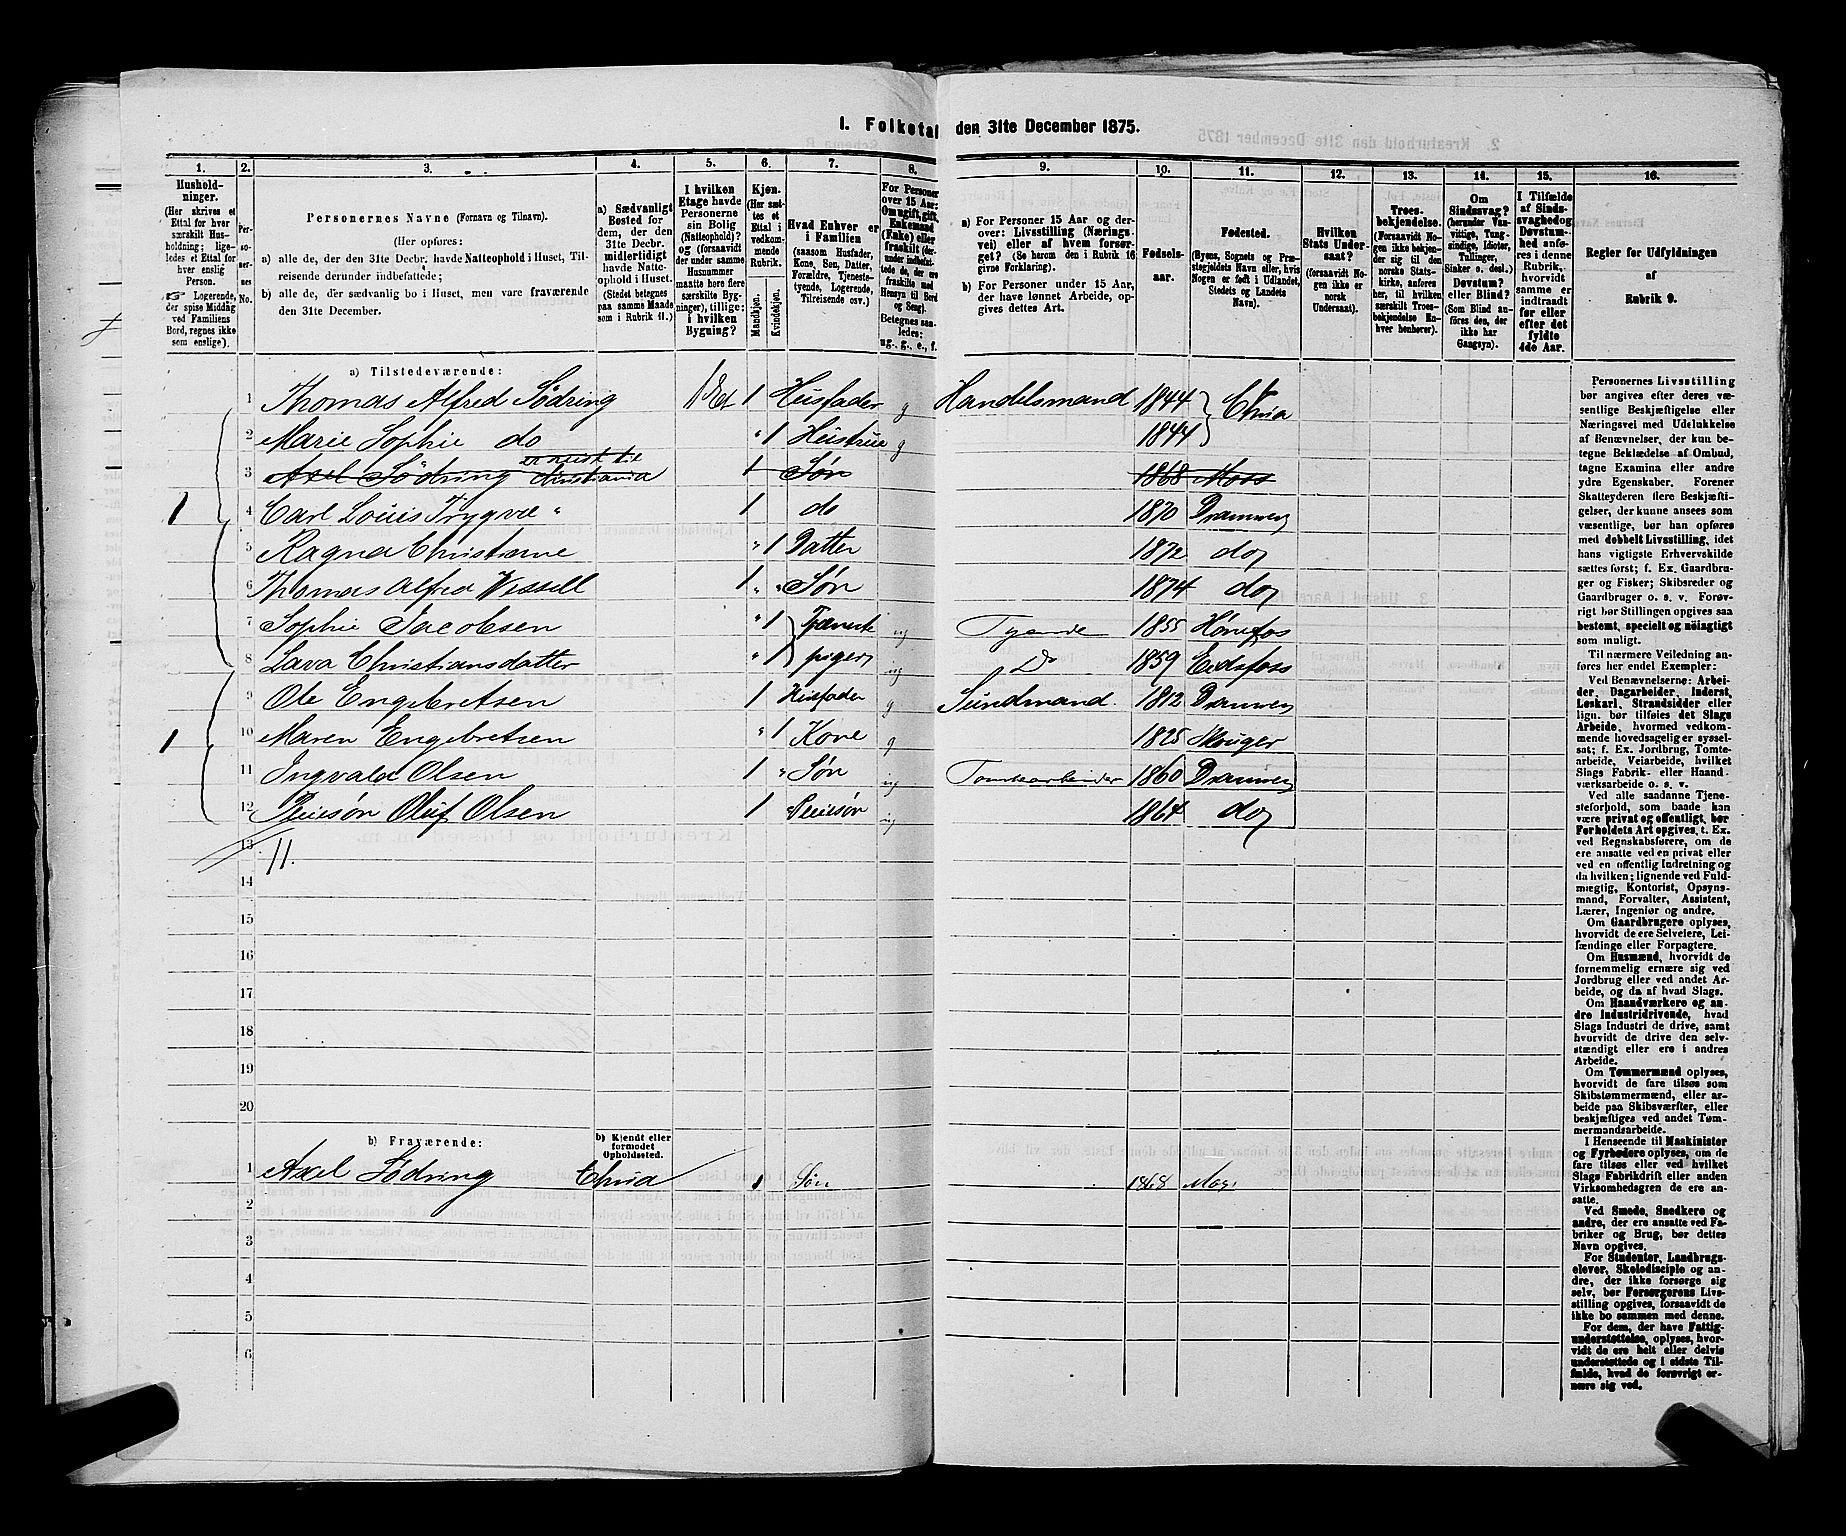 1. Folketal den 31te December 1875.
1. 2. 3. 4. 5. 6. 7. 8. 9. 10. 11. 12. 13. 14. 15. 16.
Hushold-
ninger.
(Her skrives et
Ettal for hver
særskilt Hus-
holdning; lige-
ledes et Ettal for
hver enslig
Person.
☞ Logerende,
der spise Middag
ved Familiens
Bord, regnes ikke
som enslige).
Per-
so-
ner-
nes
No.
Personernes Navne (Fornavn og Tilnavn).
(Her opføres:
a) alle de, der den 31te Decbr. havde Natteophold i Huset, Til-
reisende derunder indbefattede;
b) alle de, der sædvanlig bo i Huset, men vare fraværende
den 31te December.
a) Sædvanligt
Bosted for
dem, der den
31te Decbr.
midlertidigt
havde Natte-
ophold i Huset.
(Stedet betegnes
paa samme Maade
som i Rubrik 11.)
I hvilken
Etage havde
Personerne
sin Bolig
(Natteophold)?
og (forsaavidt
der under samme
Husnummer
maatte høre flere
særskilte Byg-
ninger), tillige:
i hvilken
Bygning?
Kjøn.
(Her sæt-
tes et
Ettal i
vedkom-
mende
Rubrik.
Mandkjøn.
Kvindekjøn.
Hvad Enhver er
i Familien
(saasom Husfader,
Kone, Søn, Datter,
Forældre, Tjeneste-
tyende, Logerende,
Tilreisende osv.)
For Personer
over 15 Aar:
Om ugift, gift,
Enkemand
(Enke) eller
fraskilt (der-
under indbefat-
tede de, der ere
fraskilte med
Hensyn til Bord
og Seng).
Betegnes saa-
ledes:
ug., g., e., f.
a) For Personer 15 Aar og der-
over: Livsstilling (Nærings-
vei) eller af hvem forsør-
get? (Se herom den i Rubrik 16
givne Forklaring).
b) For Personer under 15 Aar,
der have lønnet Arbeide, op-
gives dettes Art.
Fødsels-
aar.
Fødested.
(Byens, Sognets og Præ-
stegjeldets Navn eller, hvis
Nogen er født i Udlandet,
Stedets og Landets
Navn).
Hvilken
Stats Under-
saat?
(forsaavidt No-
gen ikke er
norsk
Undersaat).
Troes-
bekjendelse.
(Forsaavidt No-
gen ikke bekjen-
der sig til den
norske Stats-
kirke, anføres
her, til hvilken
særskilt Troes-
bekjendelse En-
hver henhører).
Om
Sindssvag?
(herunder Van-
vittige, Tung-
sindige, Idioter,
Tullinger,
Sinker o. desl.)
Døvstum?
eller Blind?
(Som Blind an-
føres den, der
ikke har
Gangsyn).
I Tilfælde
af Sinds-
svaghed og
Døvstum-
hed anfø-
res i denne
Rubrik,
hvorvidt
samme er
indtraadt
før eller
efter det
fyldte
4de Aar.
Regler for Udfyldningen
af
Rubrik 9.
a) Tilstedeværende:
1 Thomas Alfred Södring 1 Et 1 Husfader g Handelsmand 1844 Chria
2 Marie Sophie do " 1 Hustrue g 1844
er reist til
3 Axel Södring Christiania 1 Søn 1868 Moss
1 4 Carl Louis Trygve " 1 do 1870 Drammen
5 Ragna Christine " 1 Datter 1872 do
6 Thomas Alfred Wessell 1 " Søn 1874 do
7 Sophie Jacobsen " 1 Tjeneste ug Tyende 1855 Hønefos
8 Lava Christiansdatter " 1 piger ug Do 1859 Eidsfoss
9 Ole Engebretsen 1 Husfader g Sundmand. 1812 Drammen
1 10 Maren Engebretsen " 1 Kone g 1825 Skouger
11 Ingvald Olsen 1 " Søn ug Tomtearbeider 1860 Drammen
12 Pleiesøn Oluf Olsen 1 Pleiesøn ug 1864 do
13 11.
14
15
16
17
18
19
20
b) Fraværende:
b) Kjendt eller
formodet
Opholdssted.
1 Axel Södring Chria 1 Søn 1868 Moss
2
3
4
5
6
Personernes Livsstilling
bør angives efter deres væ-
sentlige Beskjæftigelse eller
Næringsvei med Udelukkelse
af Benævnelser, der kun be-
tegne Beklædelse af Ombud,
tagne Examina eller andre
ydre Egenskaber. Forener
Skatteyderen flere Beskjæfti-
gelser, der kunne ansees som
væsentlige, bør han opføres
med dobbelt Livsstilling, idet
hans vigtigste Erhvervskilde
sættes først; f. Ex. Gaardbru-
ger og Fisker; Skibsreder og
Gaardbruger o. s. v. Forøv-
rigt bør Stillingen opgives saa
bestemt, specielt og nøiagtigt
som muligt.
Til nærmere Veiledning an-
føres her endel Exempler:
Ved Benævnelserne: Arbei-
der, Dagarbeider, Inderst,
Løskarl, Strandsidder eller
lign. bør tilføies det Slags
Arbeide, hvormed vedkom-
mende hovedsagelig er syssel-
sat; f. Ex. Jordbrug, Tomte-
arbeide, Veiarbeide, hvilket
Slags Fabrik- eller Haand-
værksarbeide o. s. v.
Ved alle saadanne Tjene-
steforhold, som baade kan
være privat og offentligt, bør
Forholdets Art opgives, t. Ex.
ved Regnskabsførere, om de
ere ansatte ved en privat eller
ved en offentlig Indretning og
da hvilken; lignende ved Fuld-
mægtig, Kontorist, Opsyns-
mand, Forvalter, Assistent,
Lærer, Ingeniør og andre.
Om Gaardbrugere oplyses,
hvorvidt de ere Selveiere, Lei-
lændinge eller Forpagtere.
Om Husmænd, hvorvidt de
fornemmelig ernære sig ved
Jordbrug eller ved andet Ar-
beide, og da af hvad Slags.
Om Haandværkere og an-
dre Industridrivende, hvad
Slags Industri de drive, samt
hvorvidt de drive den selv-
stændigt eller ere i andres
Arbeide.
Om Tømmermænd oplyses,
hvorvidt de fare tilsøs som
Skibstømmermænd, eller ar-
beide paa Skibsværfter, eller
beskjæftiges ved andet Tøm-
mermandsarbeide.
I Henseende til Maskinister
og Fyrbødere oplyses, om de
fare tilsøs eller ved hvilket
Slags Fabrikdrift eller anden
Virksomhedsgren de ere an-
satte.
Ved Smede, Snedkere og
andre, der ere ansatte ved Fa-
briker og Brug, bør dettes
Navn opgives.
For Studenter, Landbrugs-
elever, Skoledisciple og an-
dre, der ikke forsørge sig
selv, bør Forsørgerens Livs-
stilling opgives, forsaavidt de
ikke bo sammen med denne.
For dem, der have Fattig-
understøttelse, oplyses, hvor-
vidt de ere helt eller delvis
understøttede og i sidste Til-
fælde, hvad de forøvrigt er-
nære sig ved.